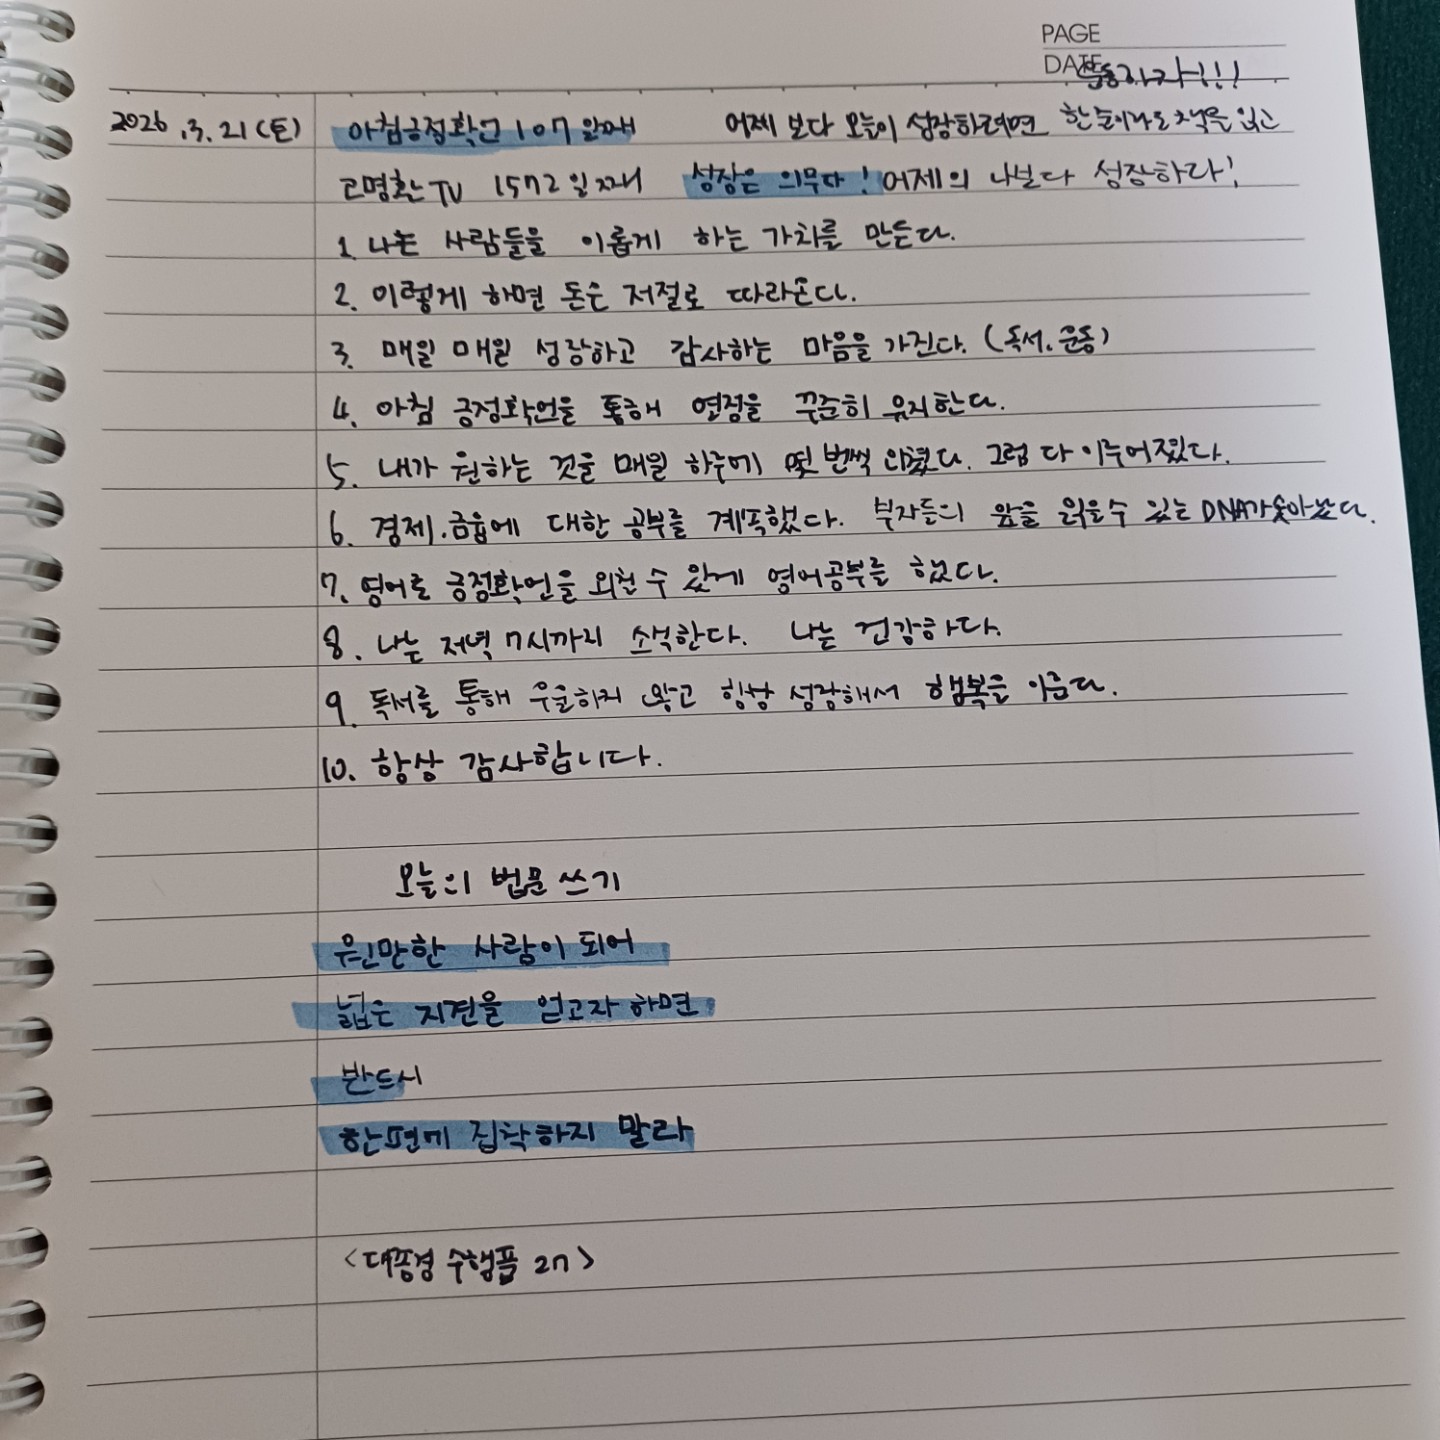 PAGE
DATE
운동하자!!!
2026.3.21(토) 아침긍정확언 107일째 어제 보다 오늘이 성장하려면 한줄이라도 책을 읽고
고명환TV 1572일째 성장은 의무다! 어제의 나보다 성장하라!
1. 나는 사람들을 이롭게 하는 가치를 만든다.
2. 이렇게 하면 돈은 저절로 따라온다.
3. 매일 매일 성장하고 감사하는 마음을 가진다. (독서.운동)
4. 아침 긍정확언을 통해 열정을 꾸준히 유지한다.
5. 내가 원하는 것을 매일 하루에 몇 번씩 외쳤다. 그럼 다 이루어졌다.
6. 경제.금융에 대한 공부를 계속했다. 부자들의 앞을 읽을수 있는 DNA가 솟아났다.
7. 영어로 긍정확언을 외칠 수 있게 영어공부를 했다.
8. 나는 저녁 7시까지 소식한다. 나는 건강하다.
9. 독서를 통해 우울하지 않고 항상 성장해서 행복을 이룬다.
10. 항상 감사합니다.
오늘의 법문 쓰기
원만한 사람이 되어
넓은 지견을 얻고자 하면
반드시
한편에 집착하지 말라
<대종경 수행품 27>